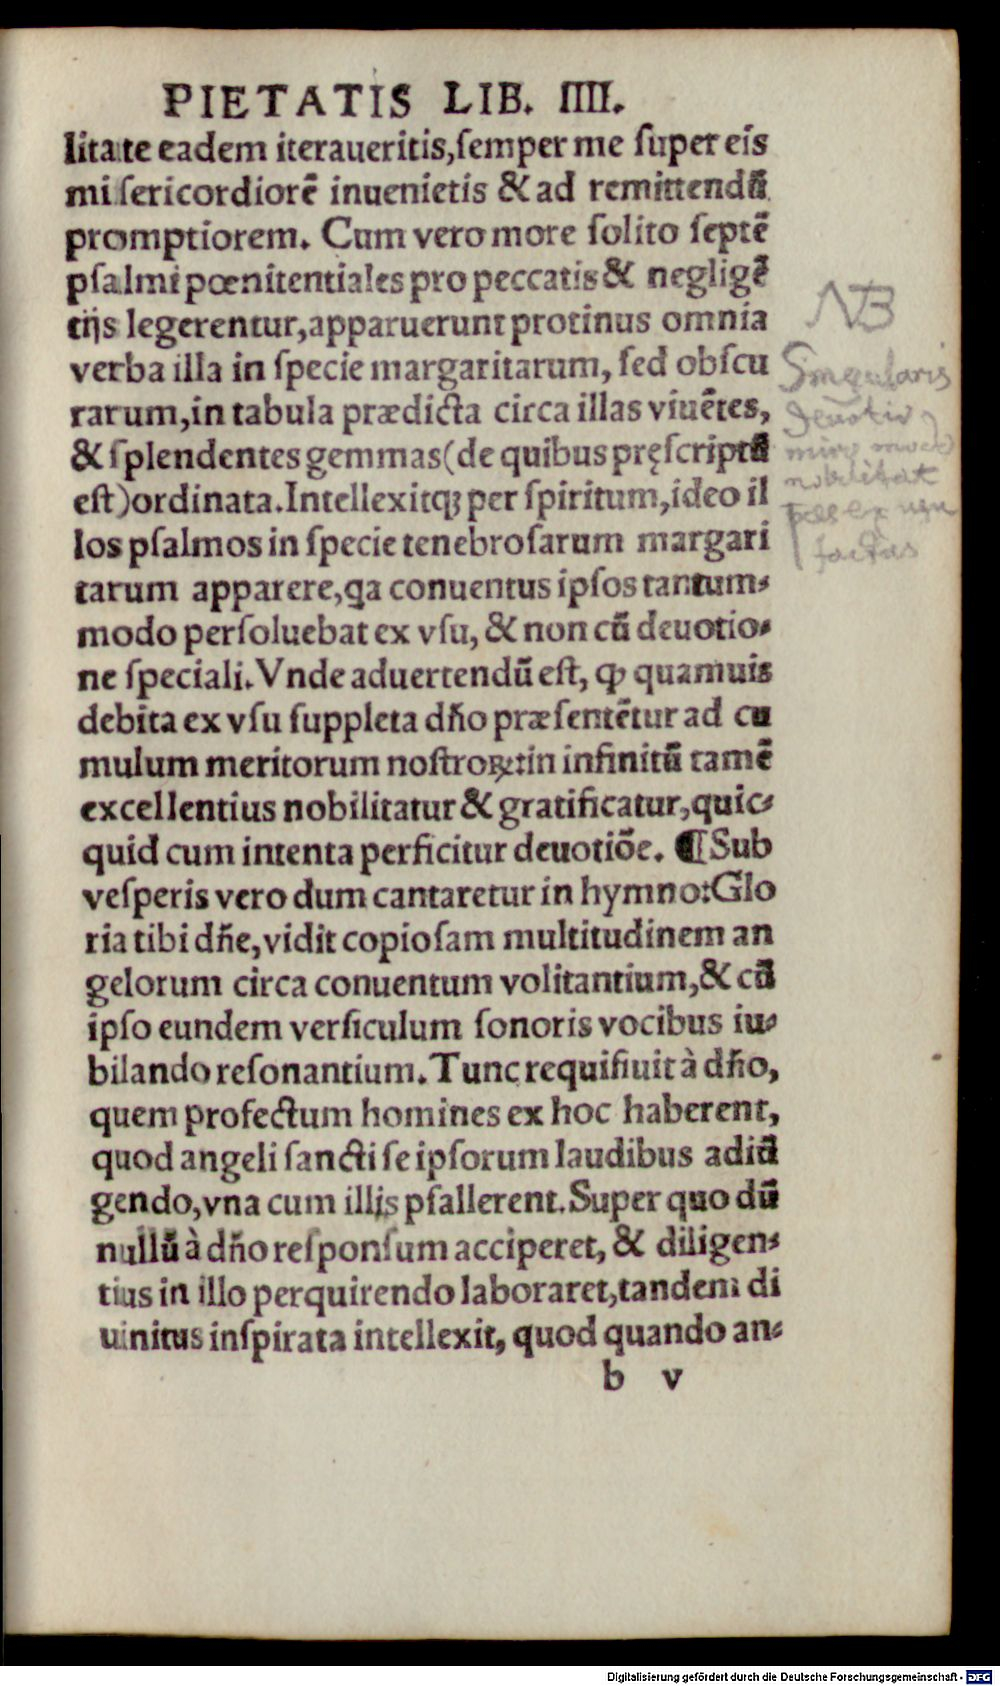 PIETATIS LIB. IIII.
litate eadem iteraueritis,ſemper me ſuper eis
miſericordiorē inuenietis & ad remittendū
promptiorem. Cum vero more ſolito ſeptē
pſalmi pœnitentiales pro peccatis & negligē
tijs legerentur,apparuerunt protinus omnia
verba illa in ſpecie margaritarum, ſed obſcu
rarum,in tabula prædicta circa illas viuētes,
& ſplendentes gemmas(de quibus pręſcriptū
eſt)ordinata.Intellexitqꝫ per ſpiritum,ideo il
los pſalmos in ſpecie tenebroſarum margari
tarum apparere,qa conuentus ipſos tantum-
modo perſoluebat ex vſu, & non cū deuotio-
ne ſpeciali.Vnde aduertendū eſt, ꝙ quamuis
debita ex vſu ſuppleta dño præſentētur ad cu
mulum meritorum noſtroꝝ:in infinitū tamē
excellentius nobilitatur & gratificatur,quic-
quid cum intenta perficitur deuotiōe. ¶Sub
veſperis vero dum cantaretur in hymno:Glo
ria tibi dñe,vidit copioſam multitudinem an
gelorum circa conuentum volitantium,& cū
ipſo eundem verſiculum ſonoris vocibus iu-
bilando reſonantium.Tunc requiſiuit à dño,
quem profectum homines ex hoc haberent,
quod angeli ſancti ſe ipſorum laudibus adiū
gendo,vna cum illis pſallerent.Super quo dū
nullū à dño reſponſum acciperet, & diligen-
tius in illo perquirendo laboraret,tandem di
uinitus inſpirata intellexit, quod quando an-
b v
NB
Singularis
nobilitat
factas
Digitalisierung gefördert durch die Deutsche Forschungsgemeinschaft - DFG